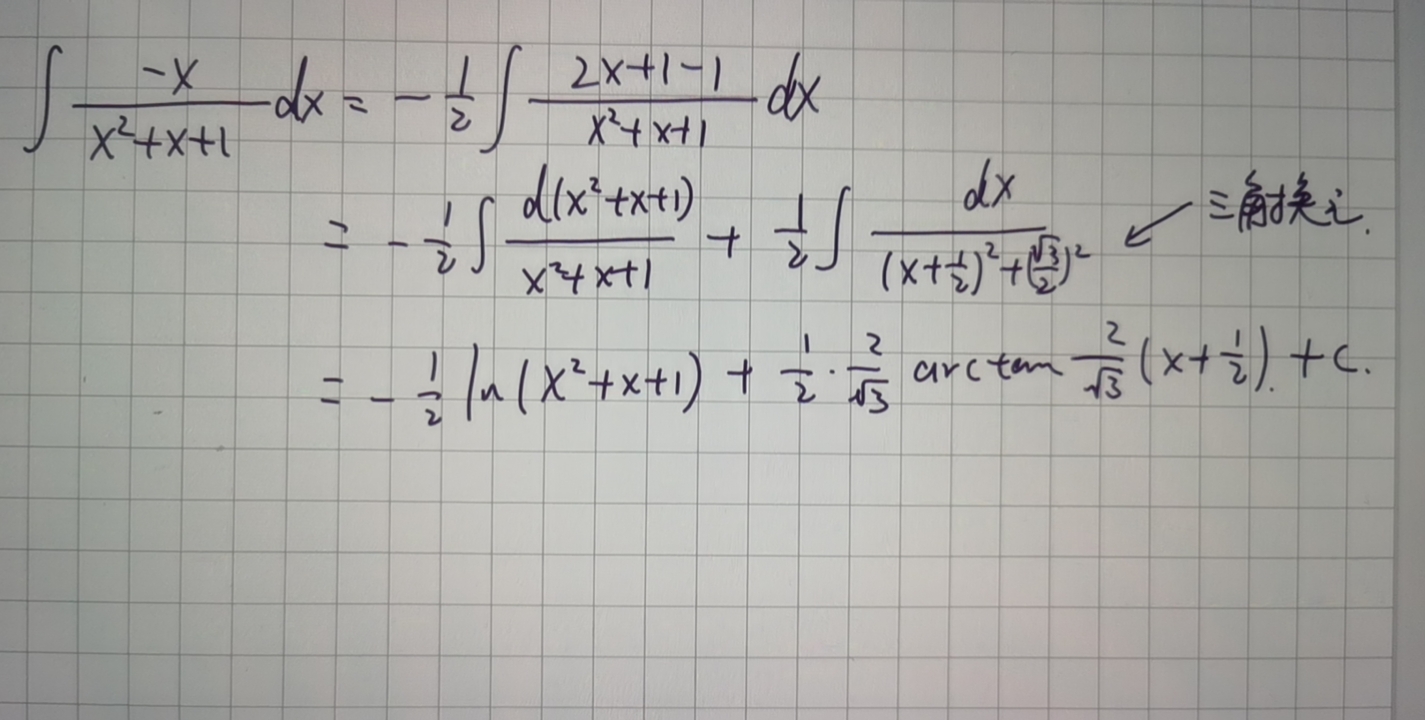 ∫ -x/(x²+x+1) dx = -1/2 ∫ (2x+1-1)/(x²+x+1) dx
= -1/2 ∫ d(x²+x+1)/(x²+x+1) + 1/2 ∫ dx/((x+1/2)²+(√3/2)²) ↙ 三角换元.
= -1/2 ln(x²+x+1) + 1/2 · 2/√3 arctan 2/√3 (x+1/2). +C.